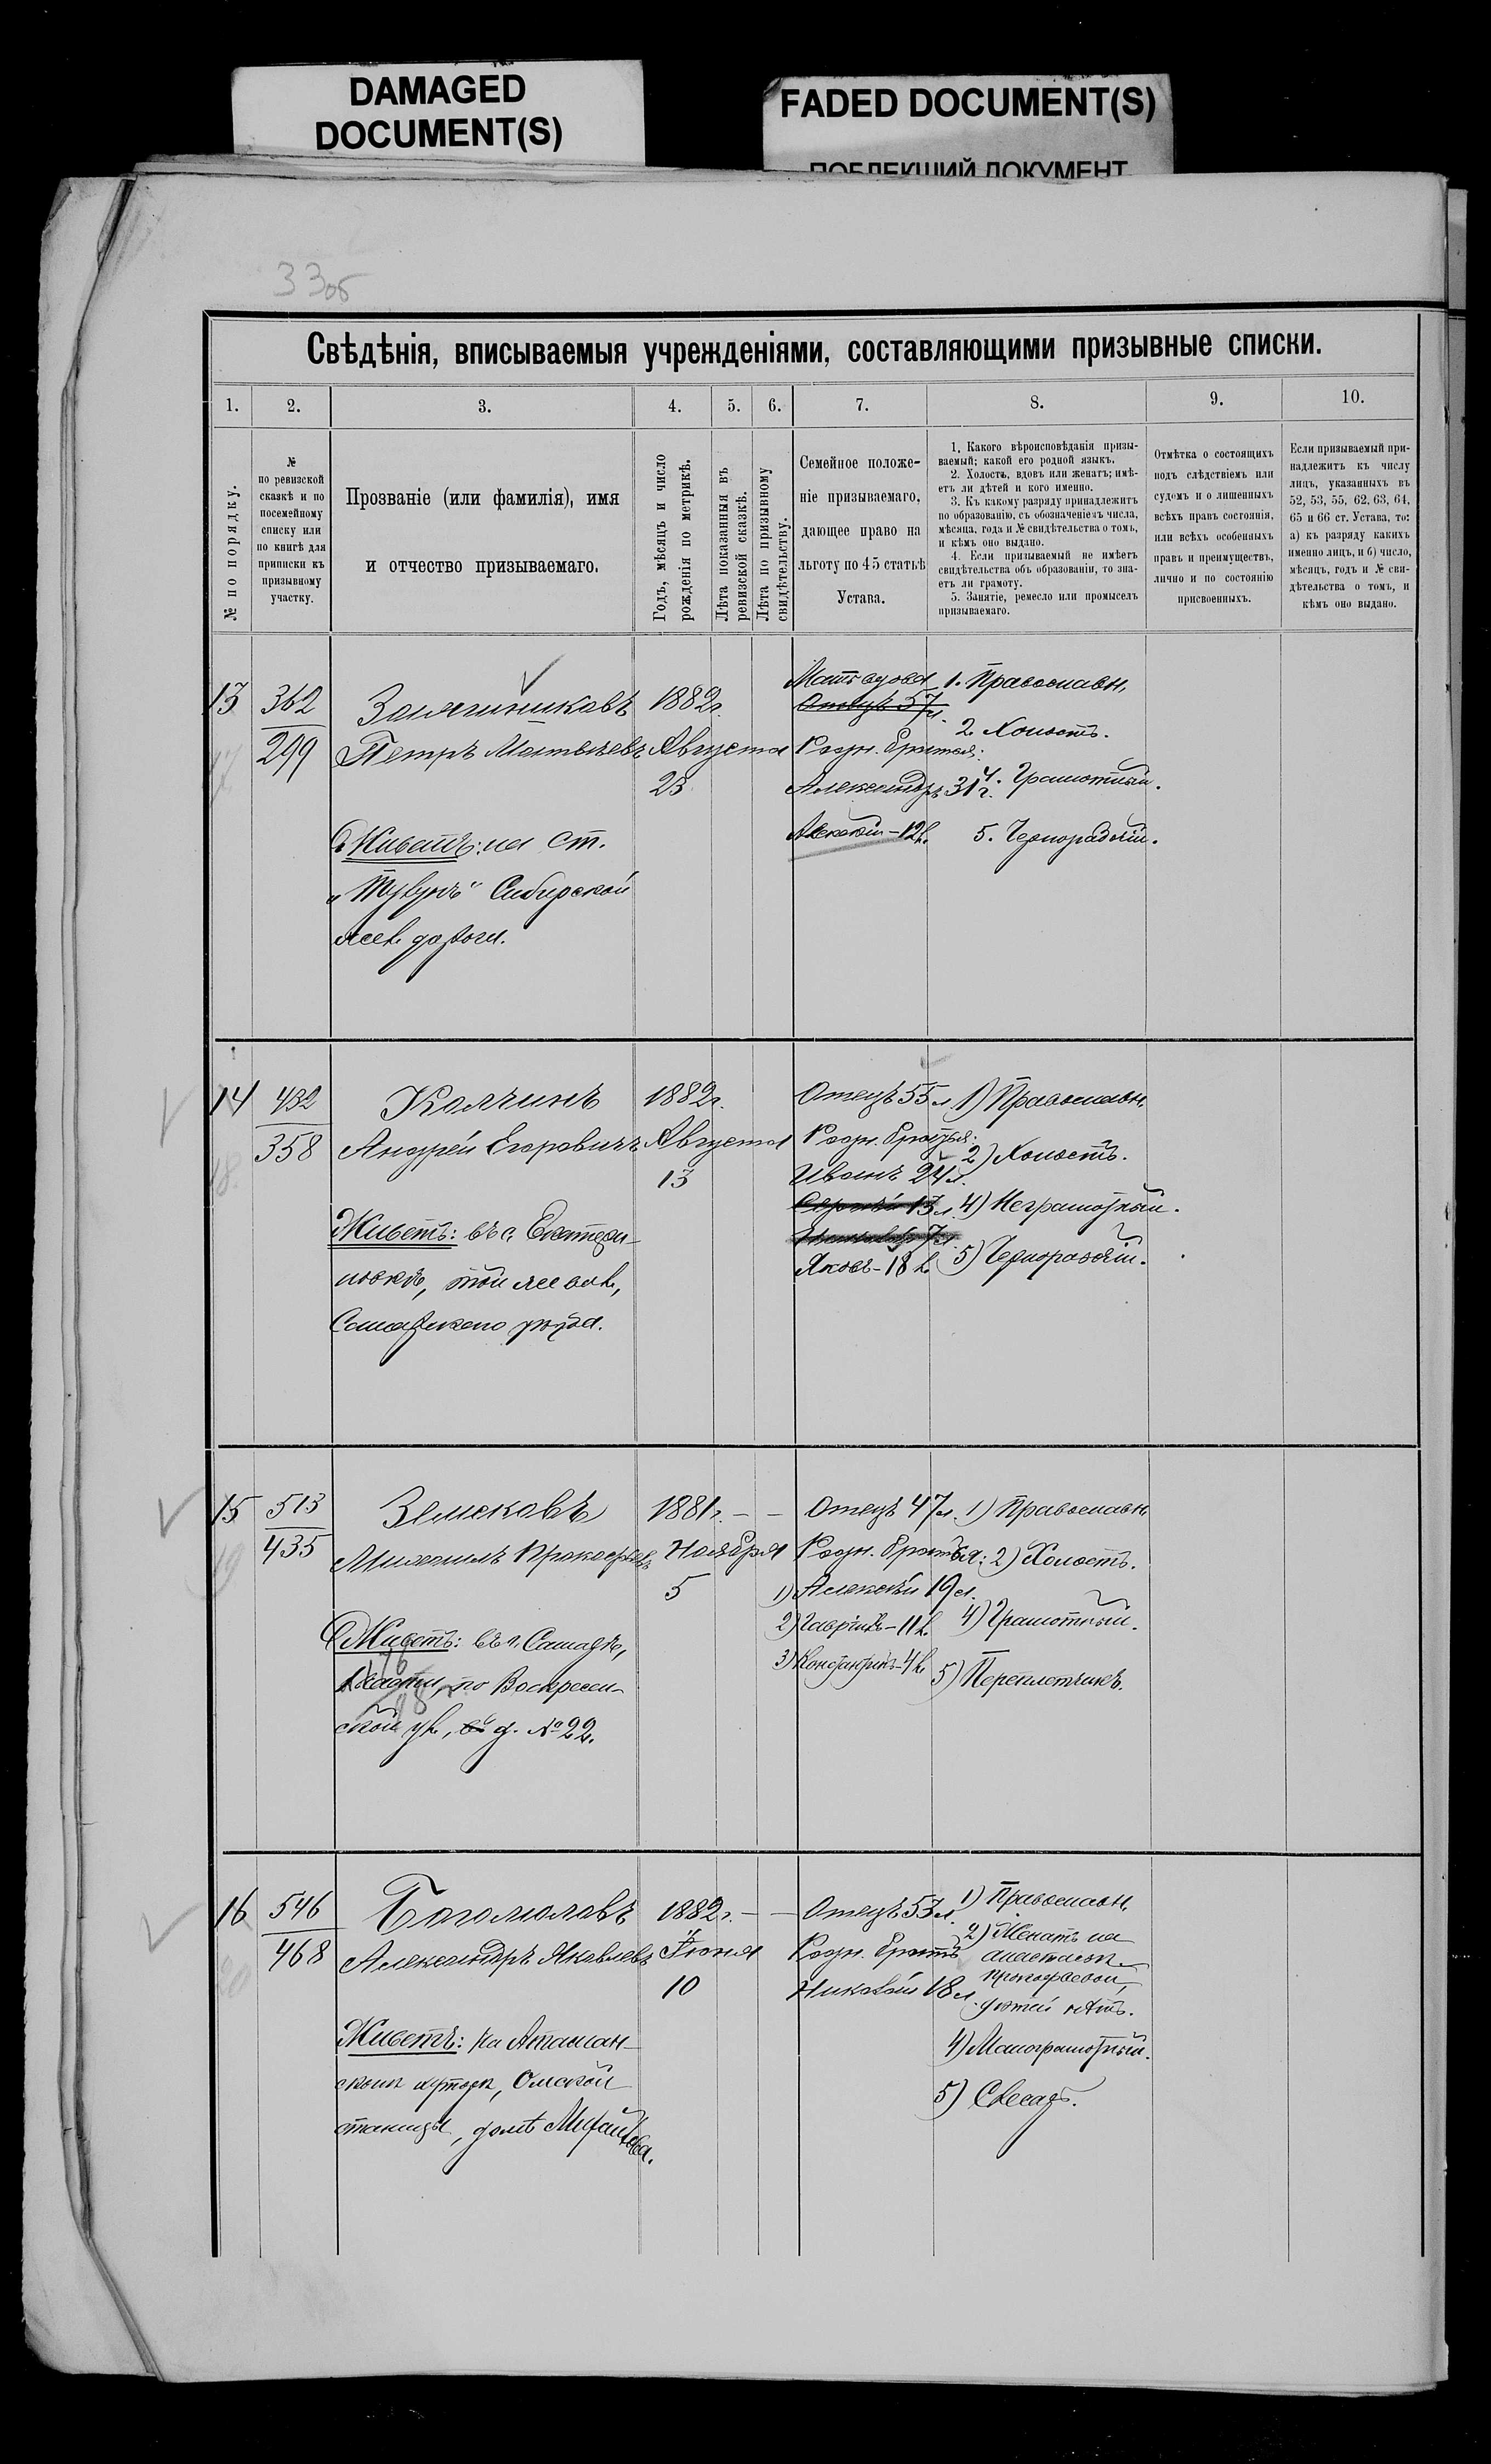 DAMAGED
DOCUMENT(S)
FADED DOCUMENT(S)
ПОБЛЕКШИЙ ДОКУМЕНТ
33об
Свѣдѣнія, вписываемыя учрежденіями, составляющими призывные списки.
1.
2.
3.
4.
5.
6.
7.
8.
9.
10.
№ по порядку.
№
по ревизской
сказкѣ и по
посемейному
списку или
по книгѣ для
приписки къ
призывному
участку.
Прозваніе (или фамилія), имя
и отчество призываемаго.
Годъ, мѣсяцъ и число
рожденія по метрикѣ.
Лѣта показанныя въ
ревизской сказкѣ.
Лѣта по призывному
свидѣтельству.
Семейное положе-
ніе призываемаго,
дающее право на
льготу по 45 статьѣ
Устава.
1. Какого вѣроисповѣданія призы-
ваемый; какой его родной языкъ.
2. Холостъ, вдовъ или женатъ; имѣ-
етъ ли дѣтей и кого именно.
3. Къ какому разряду принадлежитъ
по образованію, съ обозначеніемъ числа,
мѣсяца, года и № свидѣтельства о томъ,
и кѣмъ оно выдано.
4. Если призываемый не имѣетъ
свидѣтельства объ образованіи, то зна-
етъ ли грамоту.
5. Занятіе, ремесло или промыселъ
призываемаго.
Отмѣтка о состоящихъ
подъ слѣдствіемъ или
судомъ и о лишенныхъ
всѣхъ правъ состоянія,
или всѣхъ особенныхъ
правъ и преимуществъ,
лично и по состоянію
присвоенныхъ.
Если призываемый при-
надлежитъ къ числу
лицъ, указанныхъ въ
52, 53, 55, 62, 63, 64,
65 и 66 ст. Устава, то:
а) къ разряду какихъ
именно лицъ, и б) число,
мѣсяцъ, годъ и № сви-
дѣтельства о томъ, и
кѣмъ оно выдано.
13
362
299
Петръ Матвѣевъ
Живетъ: на ст.
Сибирской
жел. дороги.
1882г.
Августа
23
Мать вдова
Отецъ 57 л.
Родн. братья:
Александръ 31 г.
Алексѣй - 12 л.
1. Православн.
2. Холостъ.
4. Грамотный.
5. Чернорабочій.
14
432
358
Колчинъ
Андрей Егоровичъ
Живетъ: въ с. Екатери-
новкѣ, той же вол.,
1882г.
Августа
13
Отецъ 55 л.
Родн. братья:
Иванъ 24 л.
Сергѣй 13 л.
Яковъ - 18 л.
1) Православн.
2) Холостъ.
4) Неграмотный.
5) Чернорабочій.
15
513
435
Земсковъ
Михаилъ Прокофьевъ
Живетъ: въ г. Самарѣ,
части, по Воскресен-
ской ул., въ д. № 22.
1881г. - -
Ноября
5
Отецъ 47 л.
Родн. братья:
1) Алексѣй 19 л.
2) Гавріилъ - 11 л.
3) Константинъ - 4 л.
1) Православн.
2) Холостъ.
4) Грамотный.
5) Переплетчикъ.
16
546
468
Богомоловъ
Александръ Яковлевъ
Живетъ: На Атаман-
скомъ хуторѣ, Омской
станицы, домъ Михайлова.
1882г. - -
Іюня
10
Отецъ 53 л.
Родн. братъ
Николай 18 л.
1) Православн.
2) Женатъ на
Анастасіи
Прокофьевой,
дѣтей нѣтъ.
4) Малограмотный.
5) Слесарь.